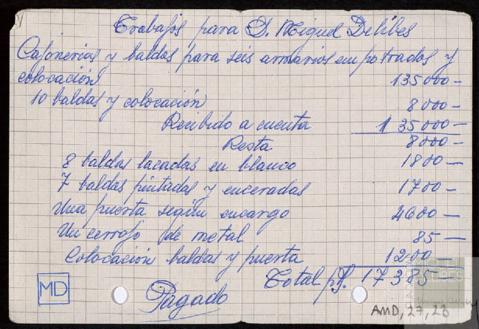 Trabajos para D. Miguel Delibes
Cajonerias y baldas para seis armarios empotrados y
colocación 135000-
10 baldas y colocación 8000-
Recibido a cuenta 135000-
Resta 8000-
8 baldas lacadas en blanco 1800-
7 baldas pintadas y enceradas 1700-
Una puerta según encargo 4600-
Un cerrojo de metal 85-
Colocación baldas y puerta 1200-
Total pts. 17385-
MD
Pagado
AMD, 27, 28